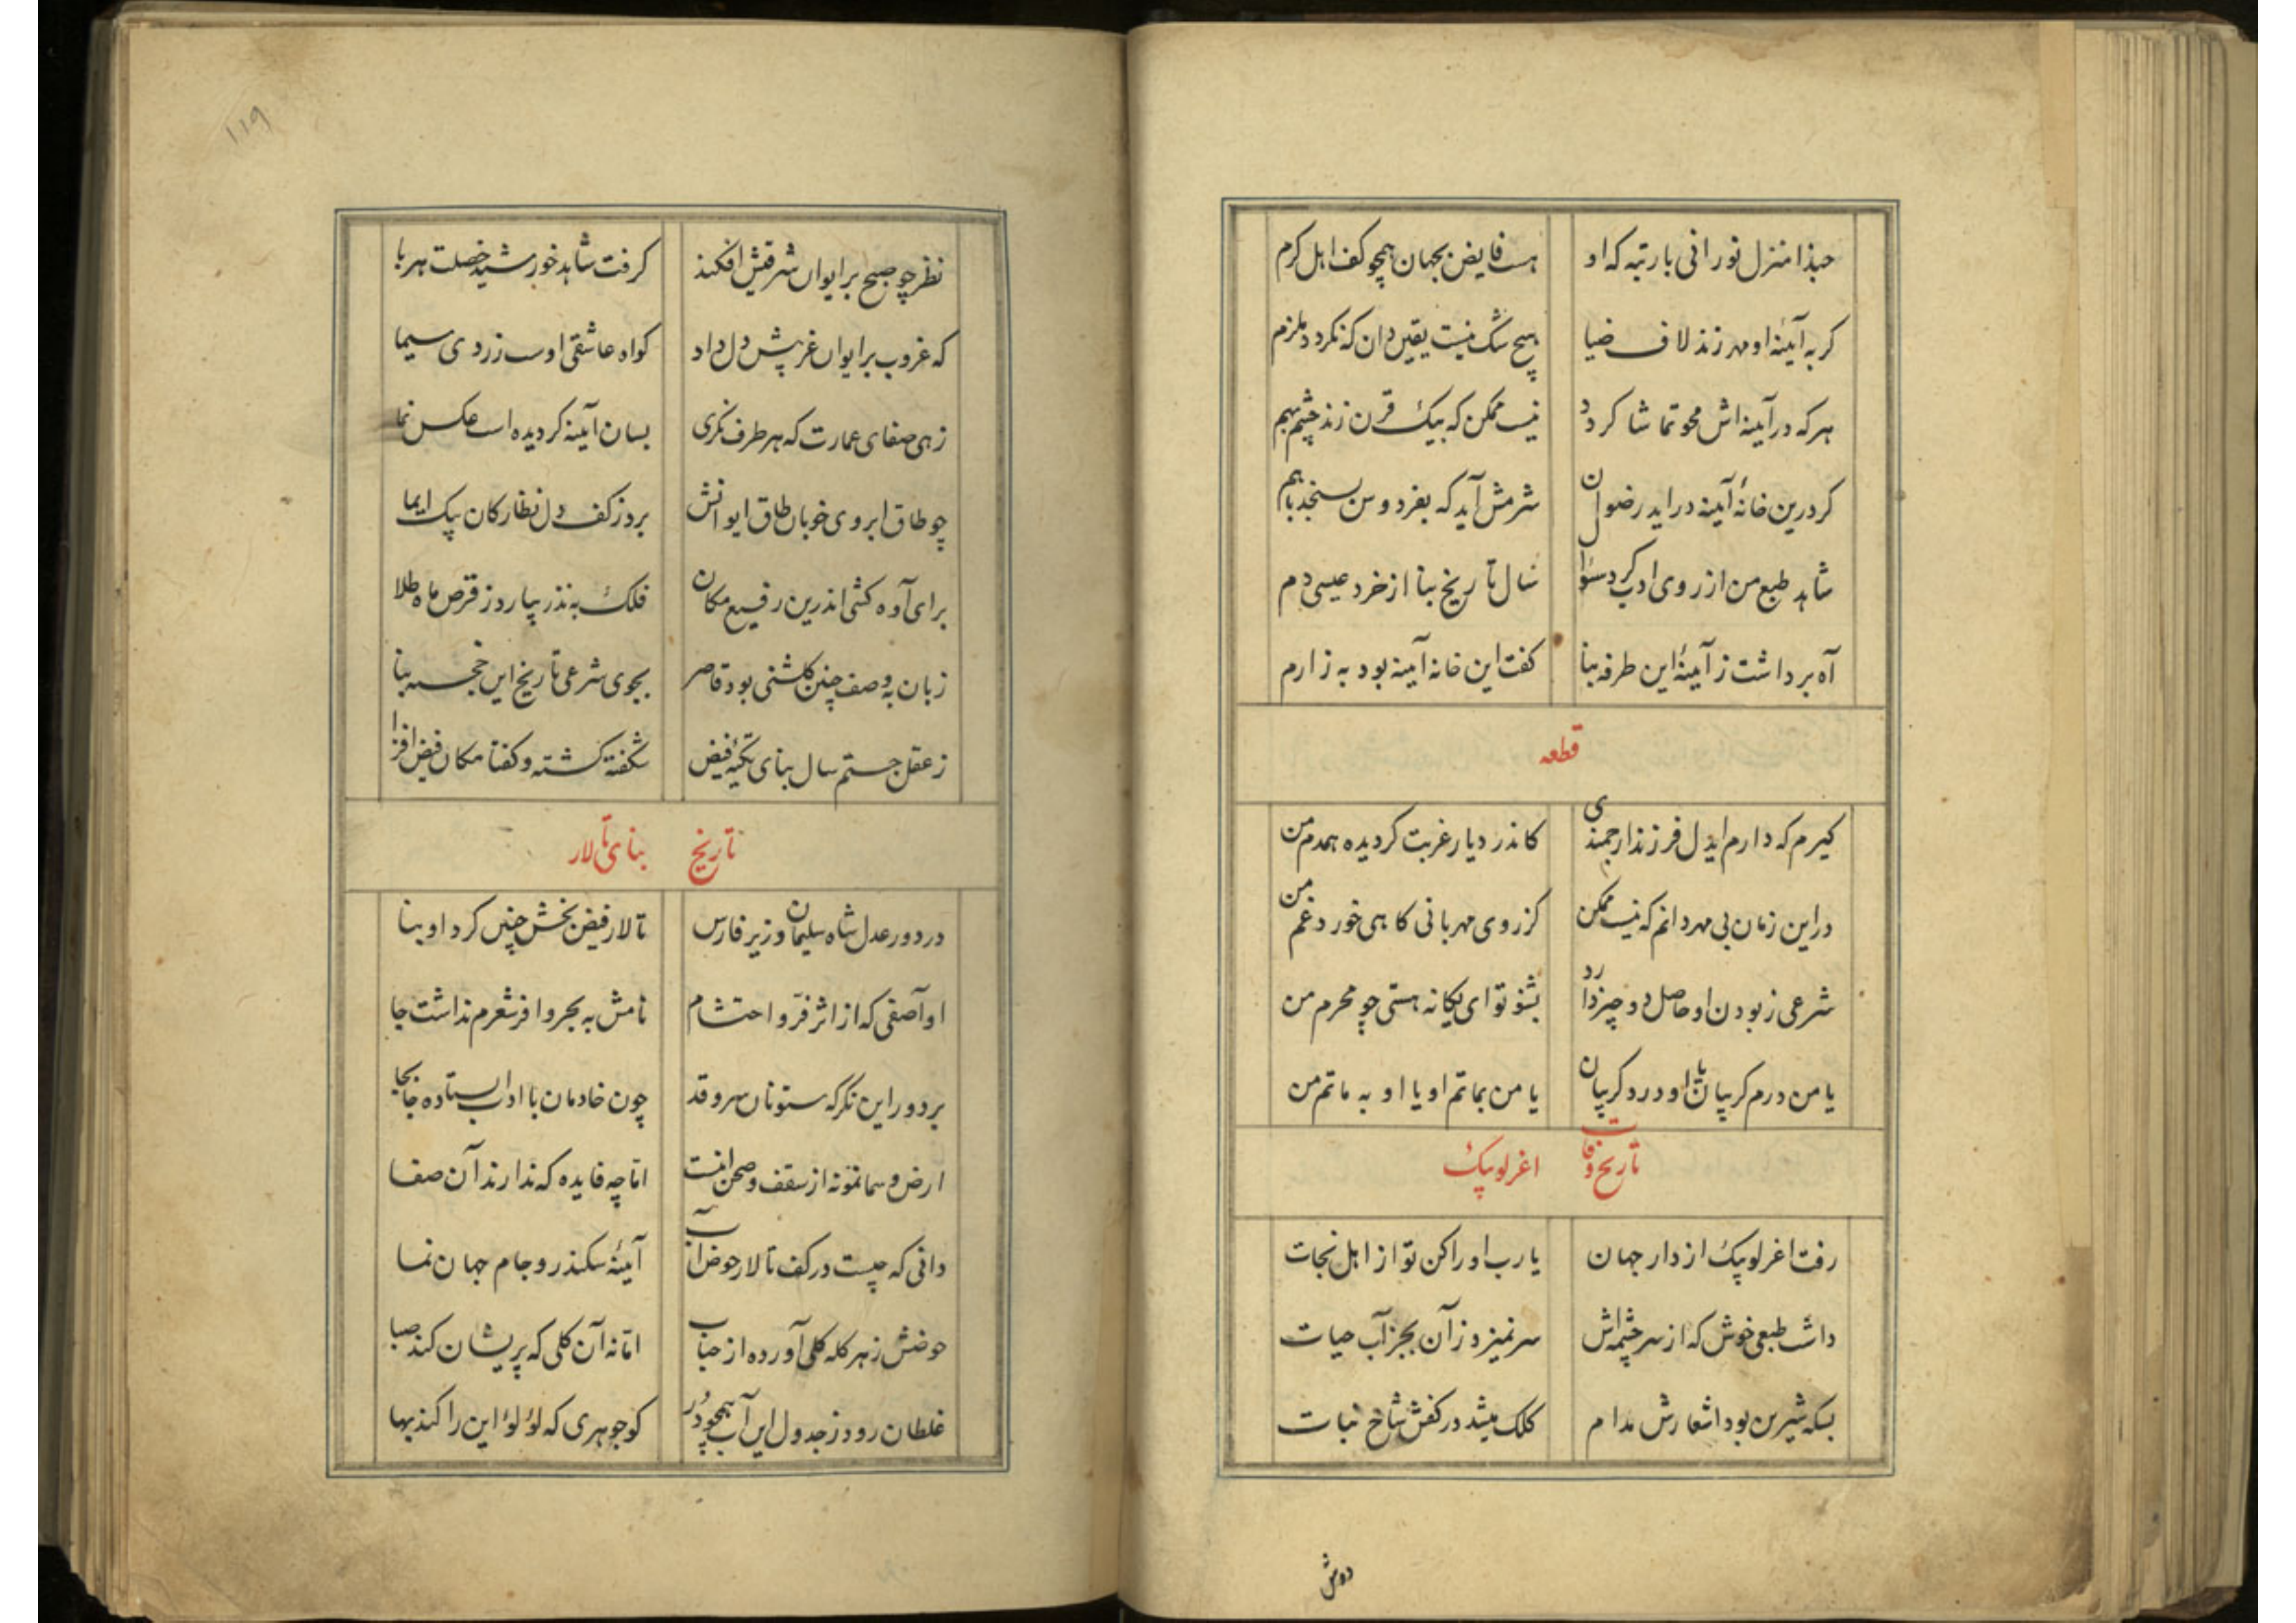 حبذا منزل نورانی بارتبه که او هست فایض بجهان همچو کف اهل کرم
کر به آیینهٔ او مهر زند لاف ضیا هیچ شک نیست یقین دان که نکردد ملزم
هر که در آیینه اش محو تماشا کردد نیست ممکن که بیک قرن زند چشم بهم
کر درین خانهٔ آیینه در اید رضوان شرمش آید که بفردوس بسنجد باهم
شاهد طبع من از روی ادب کرد سؤال سال تاریخ بنا از خرد عیسی دم
آه برداشت ز آیینهٔ این طرفه بنا کفت این خانه آیینه بود به ز ارم
قطعه
کیرم که دارم ایدل فرزند ارجمندی کاندر دیار غربت کردیده همدم من
در این زمان بی مهر دانم که نیست ممکن کز روی مهربانی کاهی خورد غم من
شرعی ز بودن او حاصل دو چیز دارد بشنو تو ای یکانه هستی چو محرم من
یا من درم کریبان یا او درد کریبان یا من بماتم او یا او به ماتم من
تاریخ وفات اغرلوبیک
رفت اغرلوبیک از دار جهان یارب او را کن تو از اهل نجات
داشت طبعی خوش که از سرچشمه اش سر نمیزد ز آن بجز آب حیات
بسکه شیرین بود اشعارش مدام کلک میشد در کفش شاخ نبات
دوش
۱۱۹
نظر چو صبح بر ایوان شرقیش افکند کرفت شاهد خورشید خصلت هربا
که غروب بر ایوان غربیش دل داد کواه عاشقی اوست زردی سیما
زهی صفای عمارت که هر طرف نکری بسان آیینه کردیده است عکس نما
چو طاق ابروی خوبان طاق ایوانش برد ز کف دل نظارکان بیک ایما
برای آوه کشی اندرین رفیع مکان فلک به نذر بیارد ز قرص ماه طلا
زبان به وصف چنین کلشنی بود قاصر بجوی شرعی تاریخ این خجسته بنا
ز عقل جستم سال بنای تکیهٔ فیض شکفته کشته و کفتا مکان فیض افزا
تاریخ بنای تالار
در دور عدل شاه سلیمان وزیر فارس تالار فیض بخش چنین کرد او بنا
او آصفی که از اثر فر و احتشام نامش به بحر وافر شعرم نداشت جا
بر دور این نکر که ستونان سرو قد چون خادمان با ادب استاده جابجا
ارض و سما نمونه از سقف و صحن اینست اما چه فایده که ندارند آن صفا
دانی که چیست در کف تالار حوض آب آیینهٔ سکندر و جام جهان نما
حوضش ز هر کله کلی آورده از حباب اما نه آن کلی که پریشان کند صبا
غلطان رود ز جدول این آب همچو در کو جوهری که لؤلؤ این را کند بها